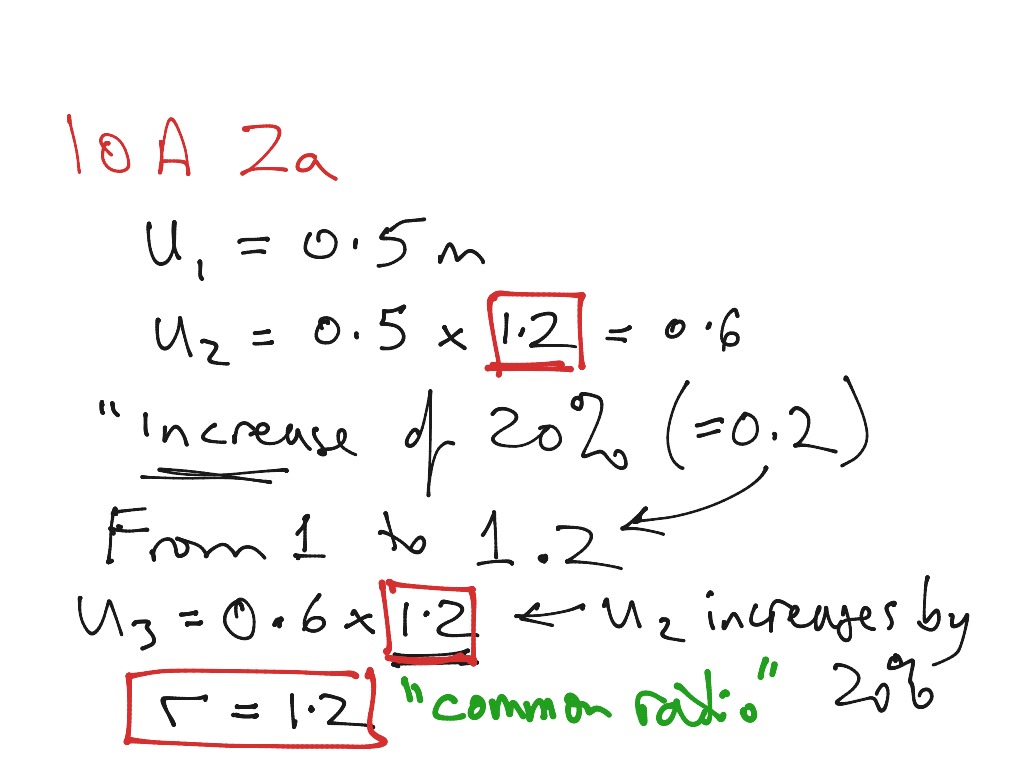 10A 2a
u₁ = 0.5 m
u₂ = 0.5 × 1.2 = 0.6
"increase of 20% (=0.2)
From 1 to 1.2
u₃ = 0.6 × 1.2 ← u₂ increases by 20%
r = 1.2 "common ratio"